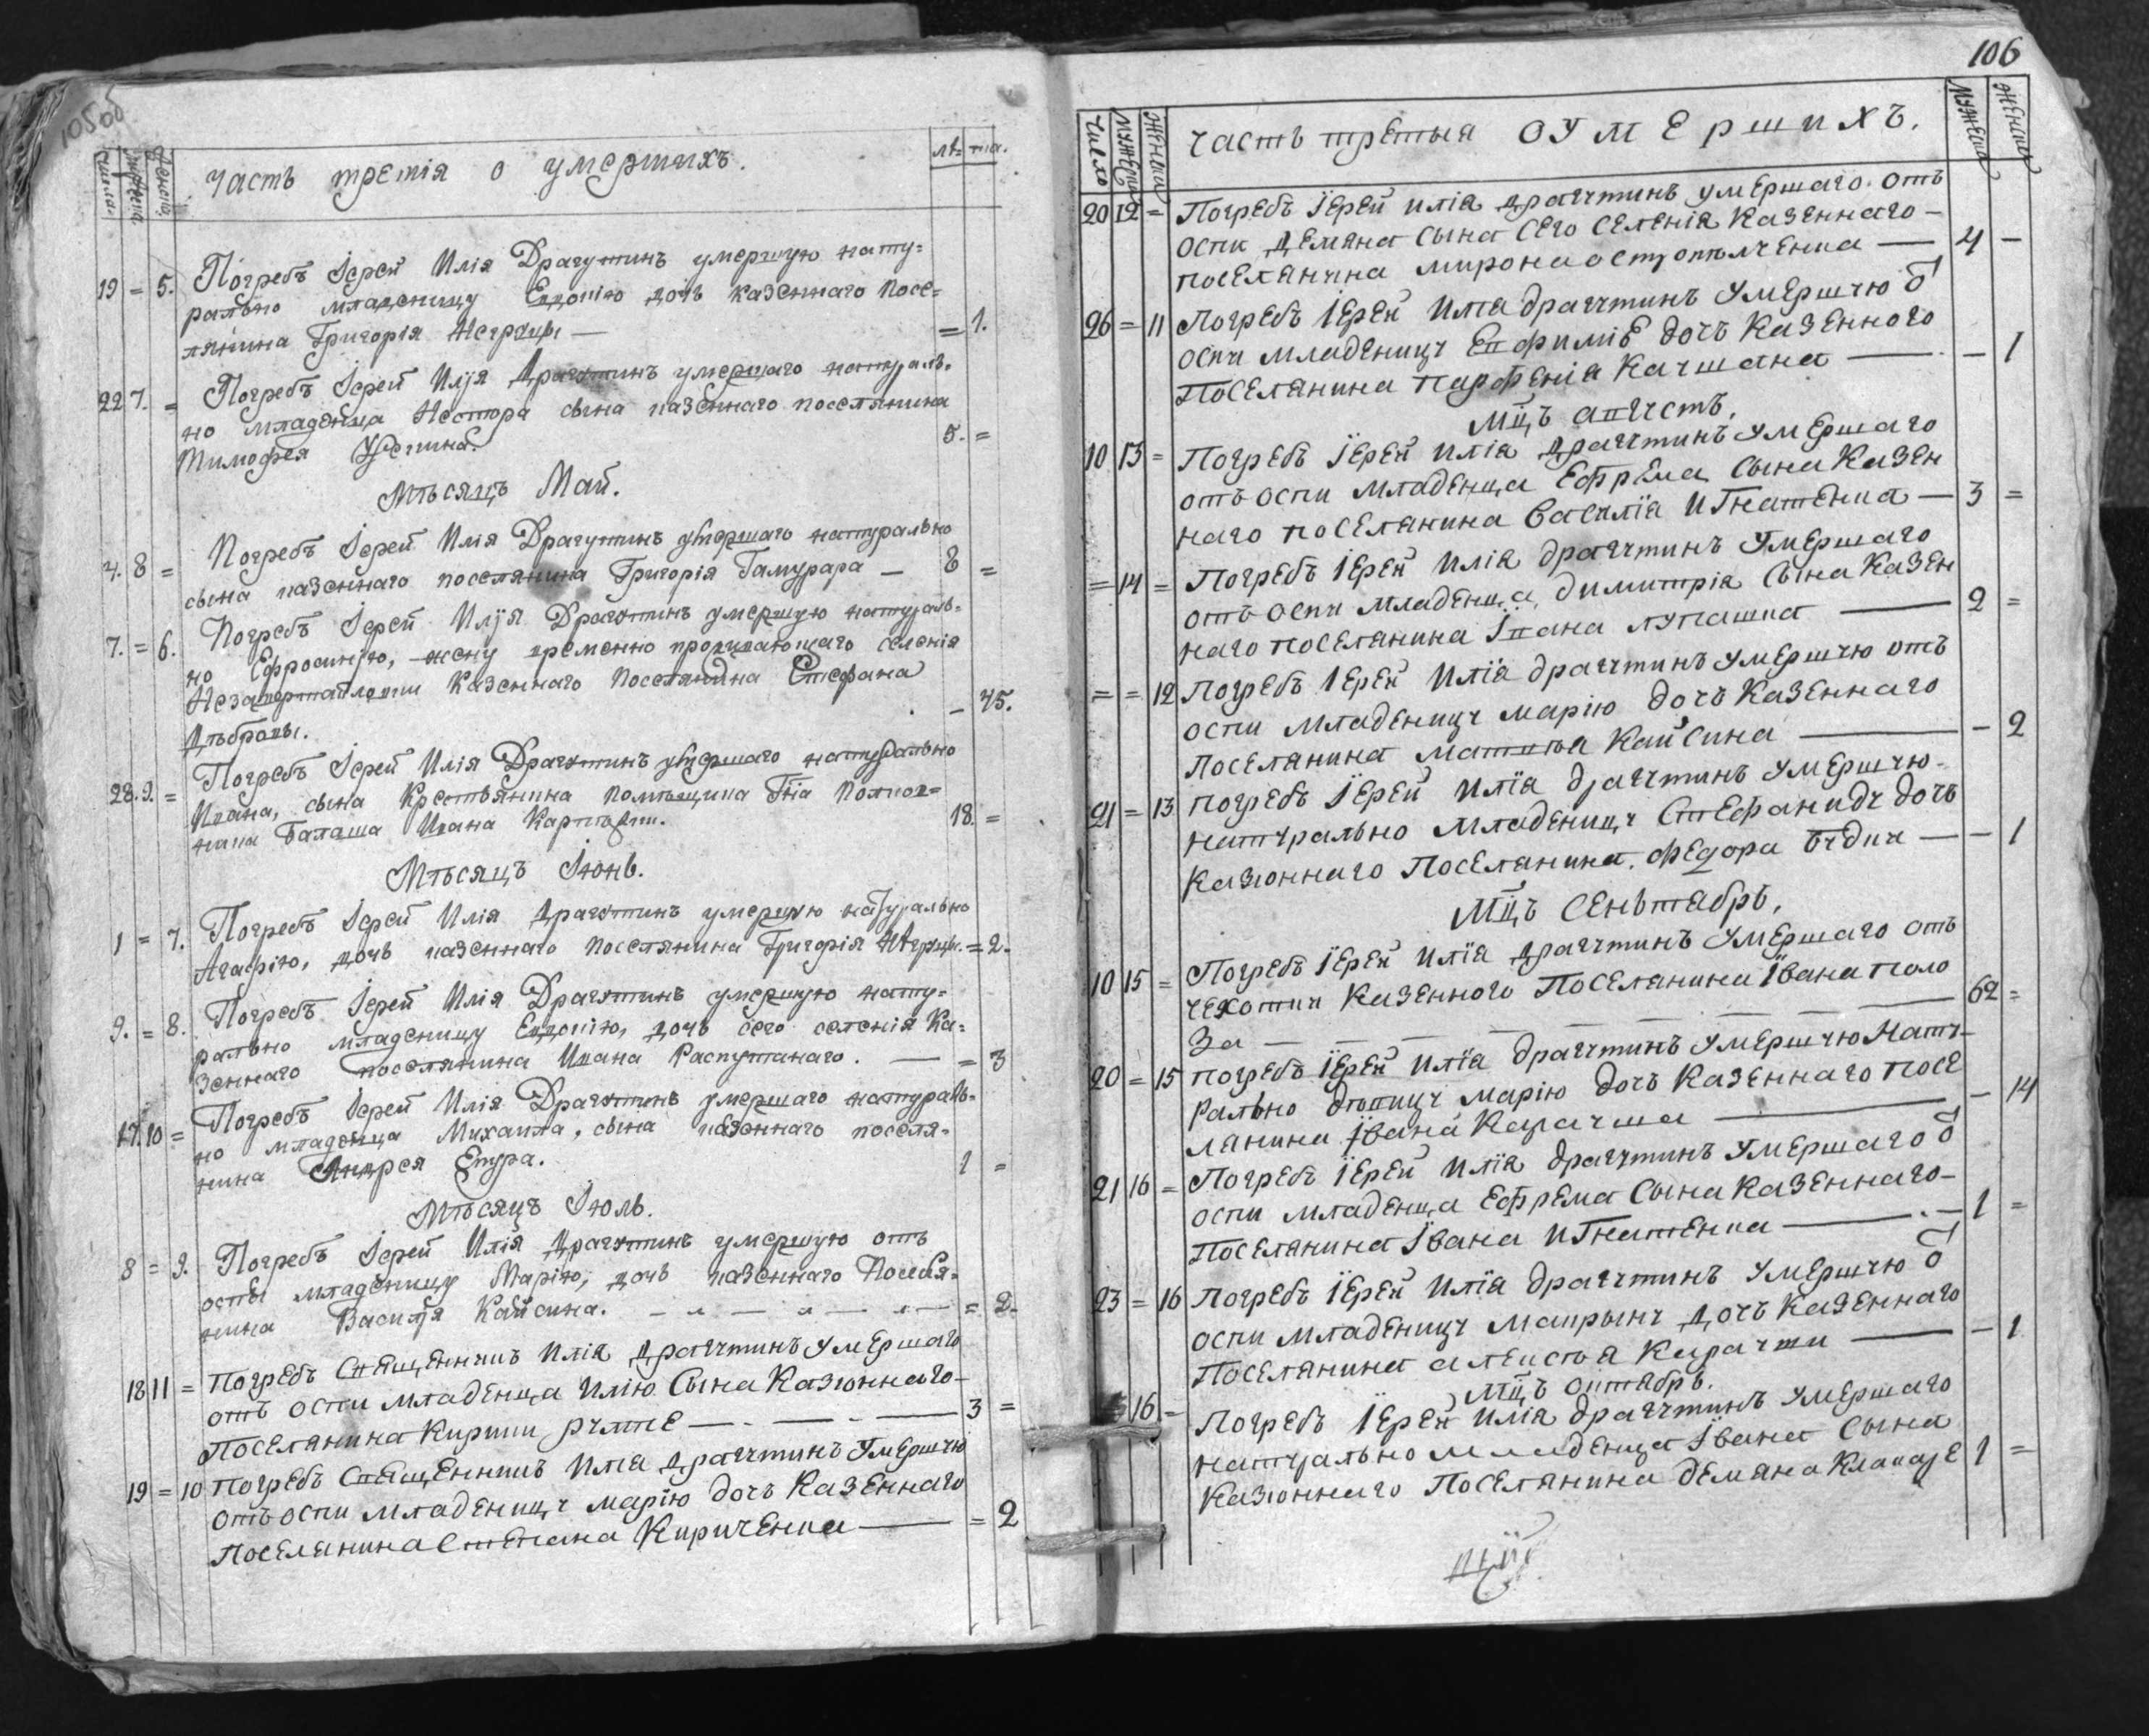 105об
числа. мужеска женска. часть третія о умершихъ. лѣ= та.
19 = 5. Погребъ Іерей Илія Драгутинъ умершую нату=
рально младеницу Евдокію дочь казеннаго посе=
лянина Григорія — = 1.
22 7. = Погребъ Іерей Илія Драгутинъ умершаго натураль-
но младенца Нестора сына казеннаго поселянина
Тимофея 5. =
Мѣсяцъ Май.
4. 8 = Погребъ Іерей Илія Драгутинъ умершаго натурально
сына казеннаго поселянина Григорія Гамурара — 8 =
7. = 6. Погребъ Іерей Илія Драгутинъ умершую натураль-
но Ефросинію, жену временно проживающаго селенія
казеннаго поселянина Стефана
Дѣбровы. — 45.
28. 9. = Погребъ Іерей Илія Драгутинъ умершаго натурально
Ивана, сына крестьянина помѣщика Полков=
ника Балаша Ивана 18. =
Мѣсяцъ Іюнь.
1 = 7. Погребъ Іерей Илія Драгутинъ умершую натурально
Агафію, дочь казеннаго поселянина Григорія = 2.
9. = 8. Погребъ Іерей Илія Драгутинъ умершую нату=
рально младеницу Евдокію, дочь сего селенія Ка=
зеннаго поселянина Ивана Распутанаго. — = 3
17. 10 = Погребъ Іерей Илія Драгутинъ умершаго натураль-
но младенца Михаила, сына казеннаго поселя-
нина Андрея Етура. 1 =
Мѣсяцъ Іюль.
8 = 9. Погребъ Іерей Илія Драгутинъ умершую отъ
оспы младеницу Марію, дочь казеннаго Поселя-
нина Василія Кайсина. = 2.
18 11 = Погребъ Священникъ Илія Драгутинъ умершаго
отъ оспи младенца Илію Сына Казіоннаго-
Поселянина Кирили — 3 =
19 = 10 Погребъ Священникъ Илія Драгутинъ Умершую
отъ оспи младеницу марію дочъ Казеннаго
Поселянина Степана Кириченка — = 2
106
число мужеска женска часть третья ОУМЕршихЪ. мужеска женска
20 12 = Погребъ Іерей Илія Драгутинъ умершаго отъ
оспи Демяна сына сего селенія Казеннаго-
поселянина мирона — 4 —
26 = 11 Погребъ Іерей Илія Драгутинъ Умершую ѿ
оспи младеницу Евфиміе дочъ Казенного
Поселянина парфенія Качшана — — 1
Мцъ августъ.
10 13 = Погребъ Іерей Илія Драгутинъ Умершаго
отъ оспи младенца Ефрема сына Казен
наго поселянина Василія Игнатенка — 3 =
= 14 = Погребъ Іерей Илія Драгутинъ Умершаго
отъ оспи младенца димитрія сына Казен
наго поселянина Івана лупашка — 2 =
= = 12 Погребъ Іерей Илія Драгутинъ Умершую отъ
оспи младеницу марію дочъ Казеннаго
Поселянина Матвѣа Кайсина — — 2
21 = 13 Погребъ Іерей Илія Драгутинъ Умершую-
натурально младеницу Стефаниду дочъ
Казіоннаго Поселянина федора — — 1
Мцъ Сеньтабръ.
10 15 = Погребъ Іерей Илія Драгутинъ Умершаго отъ
чехотки Казенного Поселянина Івана поло
за — — — — — 62 =
20 = 15 Погребъ Іерей Илія Драгутинъ Умершую Нату-
рально дѣвицу марію дочъ Казеннаго Посе
лянина Івана Карачша — — 14
21 16 = Погребъ Іерей Илія Драгутинъ Умершаго ѿ
оспи младенца Ефрема Сына Казеннаго-
Поселянина Івана Игнатенка — 1 =
23 = 16 Погребъ Іерей Илія Драгутинъ Умершую ѿ
оспи младеницу дочъ Казеннаго
Поселянина алексѣа — — 1
Мцъ октабръ.
16 = Погребъ Іерей Илія Драгутинъ Умершаго
натурально младенца Івана Сына
Казіоннаго Поселянина демяна 1 =